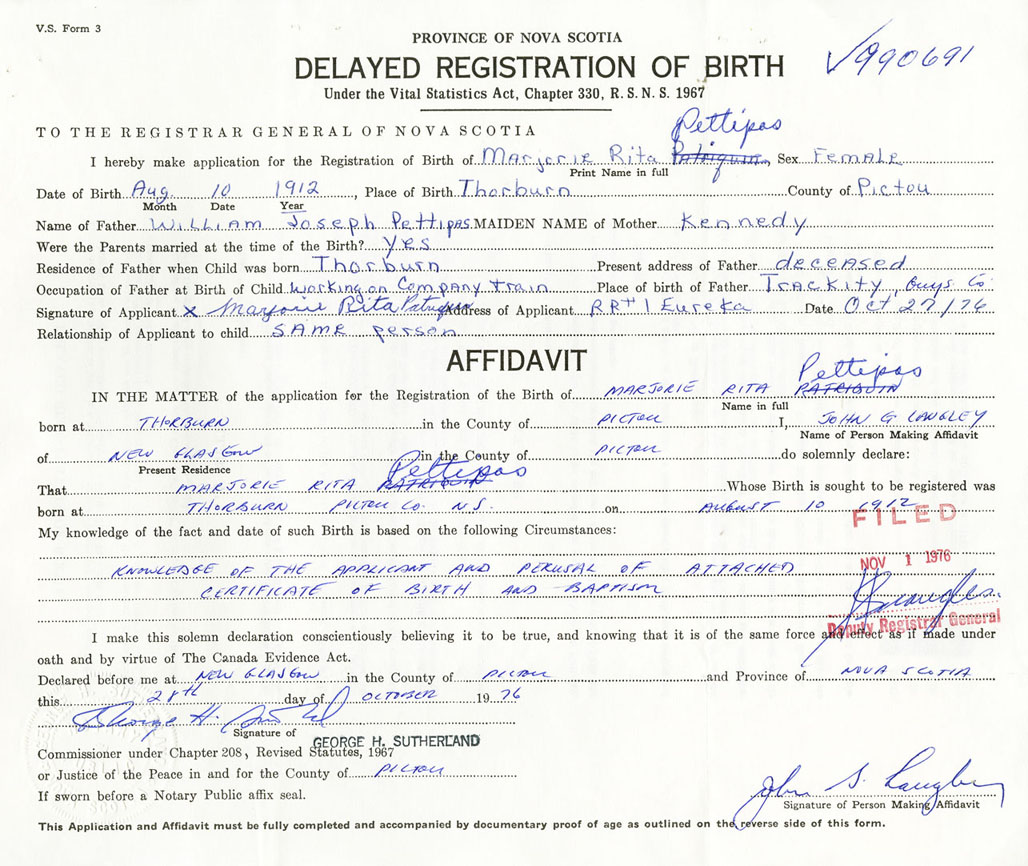 V.S. Form 3
PROVINCE OF NOVA SCOTIA
DELAYED REGISTRATION OF BIRTH
✓990691
Under the Vital Statistics Act, Chapter 330, R.S.N.S. 1967
TO THE REGISTRAR GENERAL OF NOVA SCOTIA
Pettipas
I hereby make application for the Registration of Birth of Marjorie Rita Patriquin, Sex Female
Print Name in full
Date of Birth Aug. 10 1912, Place of Birth Thorburn County of Pictou
Month Date Year
Name of Father William Joseph Pettipas MAIDEN NAME of Mother Kennedy
Were the Parents married at the time of the Birth? yes
Residence of Father when Child was born Thorburn Present address of Father deceased
Occupation of Father at Birth of Child working on Company train Place of birth of Father Trackity, Guys Co.
Signature of Applicant x Marjorie Rita Patriquin Address of Applicant RR#1 Eureka Date Oct 27/76
Relationship of Applicant to child SAME person
AFFIDAVIT
Pettipas
IN THE MATTER of the application for the Registration of Birth of MARJORIE RITA PATRIQUIN
Name in full
born at THORBURN in the County of PICTOU I, JOHN G LANGLEY
Name of Person Making Affidavit
of NEW GLASGOW in the County of PICTOU do solemnly declare:
Present Residence
Pettipas
That MARJORIE RITA PATRIQUIN Whose Birth is sought to be registered was
born at THORBURN PICTOU CO. N.S. on AUGUST 10 1912
FILED
My knowledge of the fact and date of such Birth is based on the following Circumstances:
NOV 1 1976
KNOWLEDGE OF THE APPLICANT AND PERUSAL OF ATTACHED
CERTIFICATE OF BIRTH AND BAPTISM
Deputy Registrar General
I make this solemn declaration conscientiously believing it to be true, and knowing that it is of the same force and effect as if made under
oath and by virtue of The Canada Evidence Act.
Declared before me at NEW GLASGOW in the County of PICTOU and Province of NOVA SCOTIA
this 28th day of OCTOBER 1976
George H.
Signature of
GEORGE H. SUTHERLAND
Commissioner under Chapter 208, Revised Statutes, 1967
or Justice of the Peace in and for the County of PICTOU
If sworn before a Notary Public affix seal.
John G. Langley
Signature of Person Making Affidavit
This Application and Affidavit must be fully completed and accompanied by documentary proof of age as outlined on the reverse side of this form.